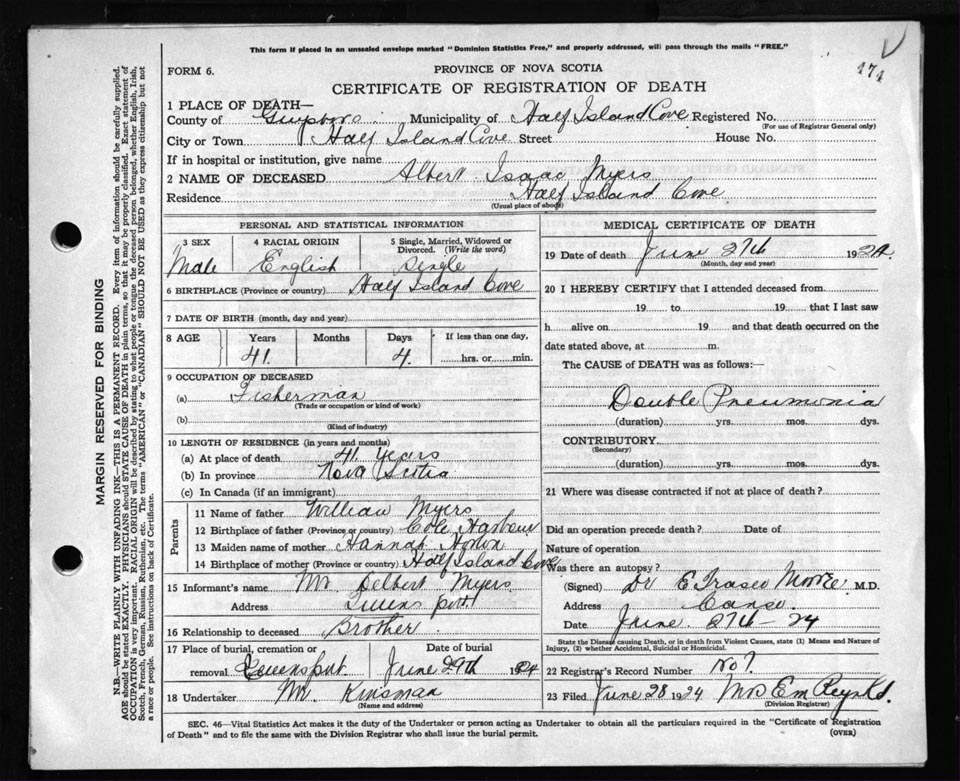 This form if placed in an unsealed envelope marked "Dominion Statistics Free," and properly addressed, will pass through the mails "FREE."
171
FORM 6.
PROVINCE OF NOVA SCOTIA
CERTIFICATE OF REGISTRATION OF DEATH
1 PLACE OF DEATH—
County of Guysboro Municipality of Half Island Cove Registered No.
(For use of Registrar General only)
City or Town Half Island Cove Street House No.
If in hospital or institution, give name
2 NAME OF DECEASED Albert Isaac Myers
Residence Half Island Cove
(Usual place of abode)
PERSONAL AND STATISTICAL INFORMATION
3 SEX Male
4 RACIAL ORIGIN English
5 Single, Married, Widowed or Divorced. (Write the word) Single
6 BIRTHPLACE (Province or country) Half Island Cove
7 DATE OF BIRTH (month, day and year)
8 AGE Years 41 Months Days 4 If less than one day, hrs. or min.
9 OCCUPATION OF DECEASED
(a) Fisherman
(Trade or occupation or kind of work)
(b)
(Kind of industry)
10 LENGTH OF RESIDENCE (in years and months)
(a) At place of death 41 Years
(b) In province Nova Scotia
(c) In Canada (if an immigrant)
Parents
11 Name of father William Myers
12 Birthplace of father (Province or country) Cole Harbour
13 Maiden name of mother Hannah Horton
14 Birthplace of mother (Province or country) Half Island Cove
15 Informant's name Mr Delbert Myers
Address
16 Relationship to deceased Brother
17 Place of burial, cremation or removal Queensport Date of burial June 29th 1924
18 Undertaker Mr Kinsman
(Name and address)
MEDICAL CERTIFICATE OF DEATH
19 Date of death June 27th 1924.
(Month, day and year)
20 I HEREBY CERTIFY that I attended deceased from
19 to 19 that I last saw
h alive on 19 and that death occurred on the
date stated above, at m.
The CAUSE of DEATH was as follows:
Double Pneumonia
(duration) yrs. mos. dys.
CONTRIBUTORY
(Secondary)
(duration) yrs. mos. dys.
21 Where was disease contracted if not at place of death?
Did an operation precede death? Date of
Nature of operation
Was there an autopsy?
(Signed) Dr E Fraser Moore M.D.
Address Canso.
Date June 27th - 24
State the Disease causing Death, or in death from Violent Causes, state (1) Means and Nature of Injury, (2) whether Accidental, Suicidal or Homicidal.
22 Registrar's Record Number No 7.
23 Filed June 28 1924 Mrs E M Reynolds.
(Division Registrar)
SEC. 46—Vital Statistics Act makes it the duty of the Undertaker or person acting as Undertaker to obtain all the particulars required in the "Certificate of Registration
of Death" and to file the same with the Division Registrar who shall issue the burial permit.
(OVER)
MARGIN RESERVED FOR BINDING
N.B.—WRITE PLAINLY WITH UNFADING INK—THIS IS A PERMANENT RECORD. Every item of information should be carefully supplied.
AGE should be stated EXACTLY. PHYSICIANS should STATE CAUSE OF DEATH in plain terms, so that it may be properly classified. Exact statement of
OCCUPATION is very important. RACIAL ORIGIN will be described by stating to what people or tongue the deceased person belonged, whether English, Irish,
Scotch, French, German, Russian, Ruthenian, etc. The terms "AMERICAN" or "CANADIAN" SHOULD NOT BE USED as they express citizenship but not
a race or people. See instructions on back of Certificate.